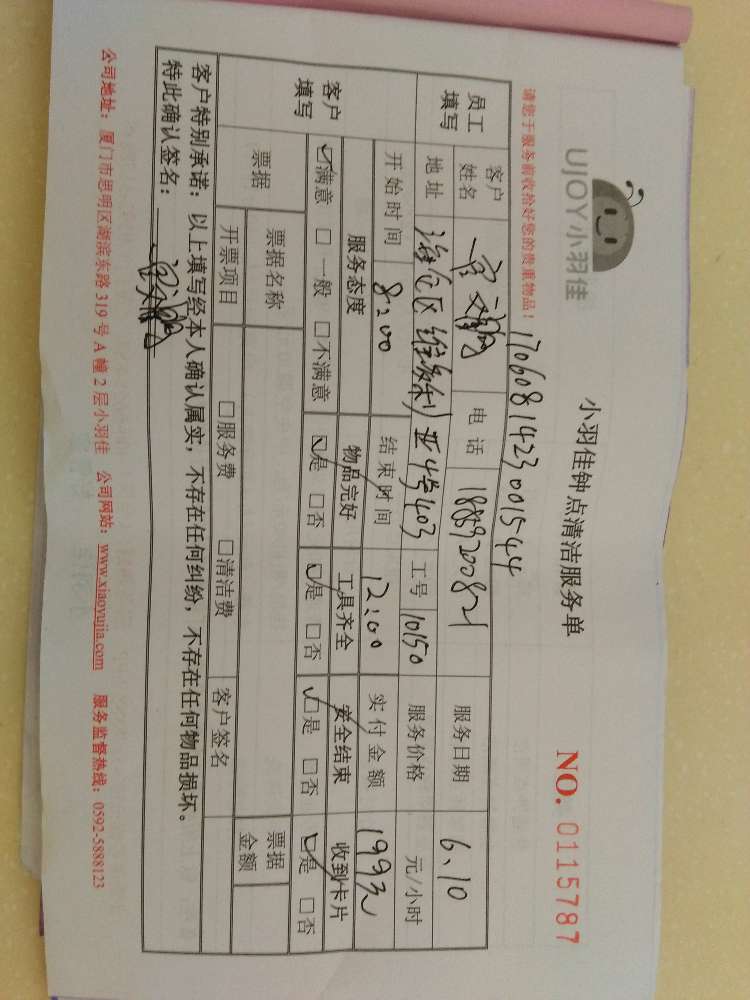 UJOY小羽佳
小羽佳钟点清洁服务单
NO. 0115787
请您于服务前收拾好您的贵重物品！
170608142300 1544
员工填写
客户姓名
电话 18859200821
服务日期 6.10
地址 海沧区 4号403
工号 10150
服务价格 元/小时
开始时间 8:00
结束时间 12:00
实付金额 199元
客户填写
服务态度 物品完好 工具齐全 安全结束 收到卡片
☑满意 □一般 □不满意 ☑是 □否 ☑是 □否 ☑是 □否 ☑是 □否
票据
票据名称
票据金额
开票项目 □服务费 □清洁费 客户签名
客户特别承诺：以上填写经本人确认属实，不存在任何纠纷，不存在任何物品损坏。
特此确认签名：
公司地址：厦门市思明区湖滨东路319号A幢2层小羽佳 公司网站：www.xiaoyujia.com 服务监督热线：0592-5888123